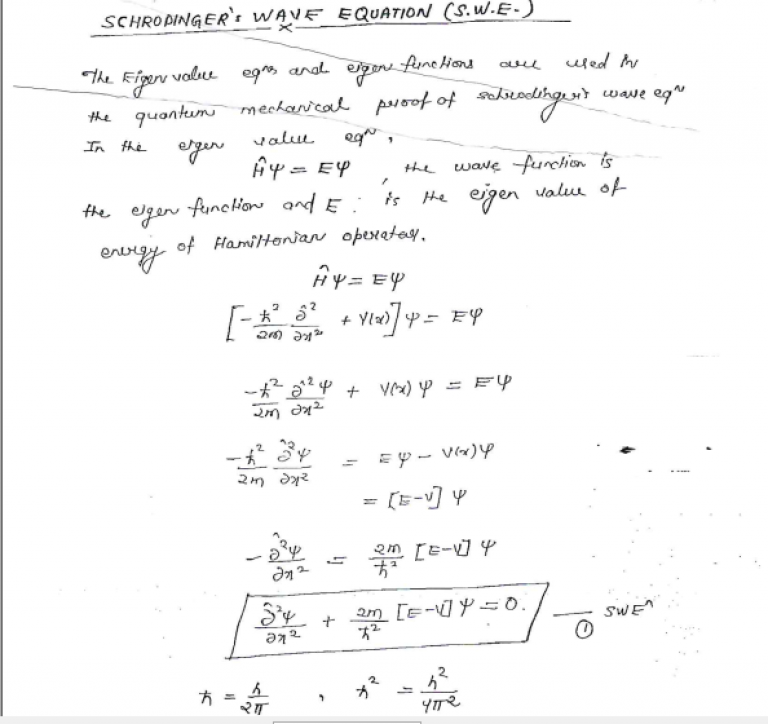 SCHRODINGER's WAVE EQUATION (S.W.E.)
The Eigen value eqns and eigen functions are used in
the quantum mechanical proof of schrodinger's wave eqn
In the eigen value eqn,
Ĥψ = Eψ , the wave function is
the eigen function and E : is the eigen value of
energy of Hamiltonian operator.
Ĥψ = Eψ
[-ℏ²/2m ∂̂²/∂x² + V(x)]ψ = Eψ
-ℏ²/2m ∂̂²ψ/∂x² + V(x)ψ = Eψ
-ℏ²/2m ∂̂²ψ/∂x² = Eψ - V(x)ψ
= [E-V]ψ
-∂̂²ψ/∂x² = 2m/ℏ² [E-V]ψ
∂̂²ψ/∂x² + 2m/ℏ² [E-V]ψ = 0. — ① SWEn
ℏ = h/2π , ℏ² = h²/4π²